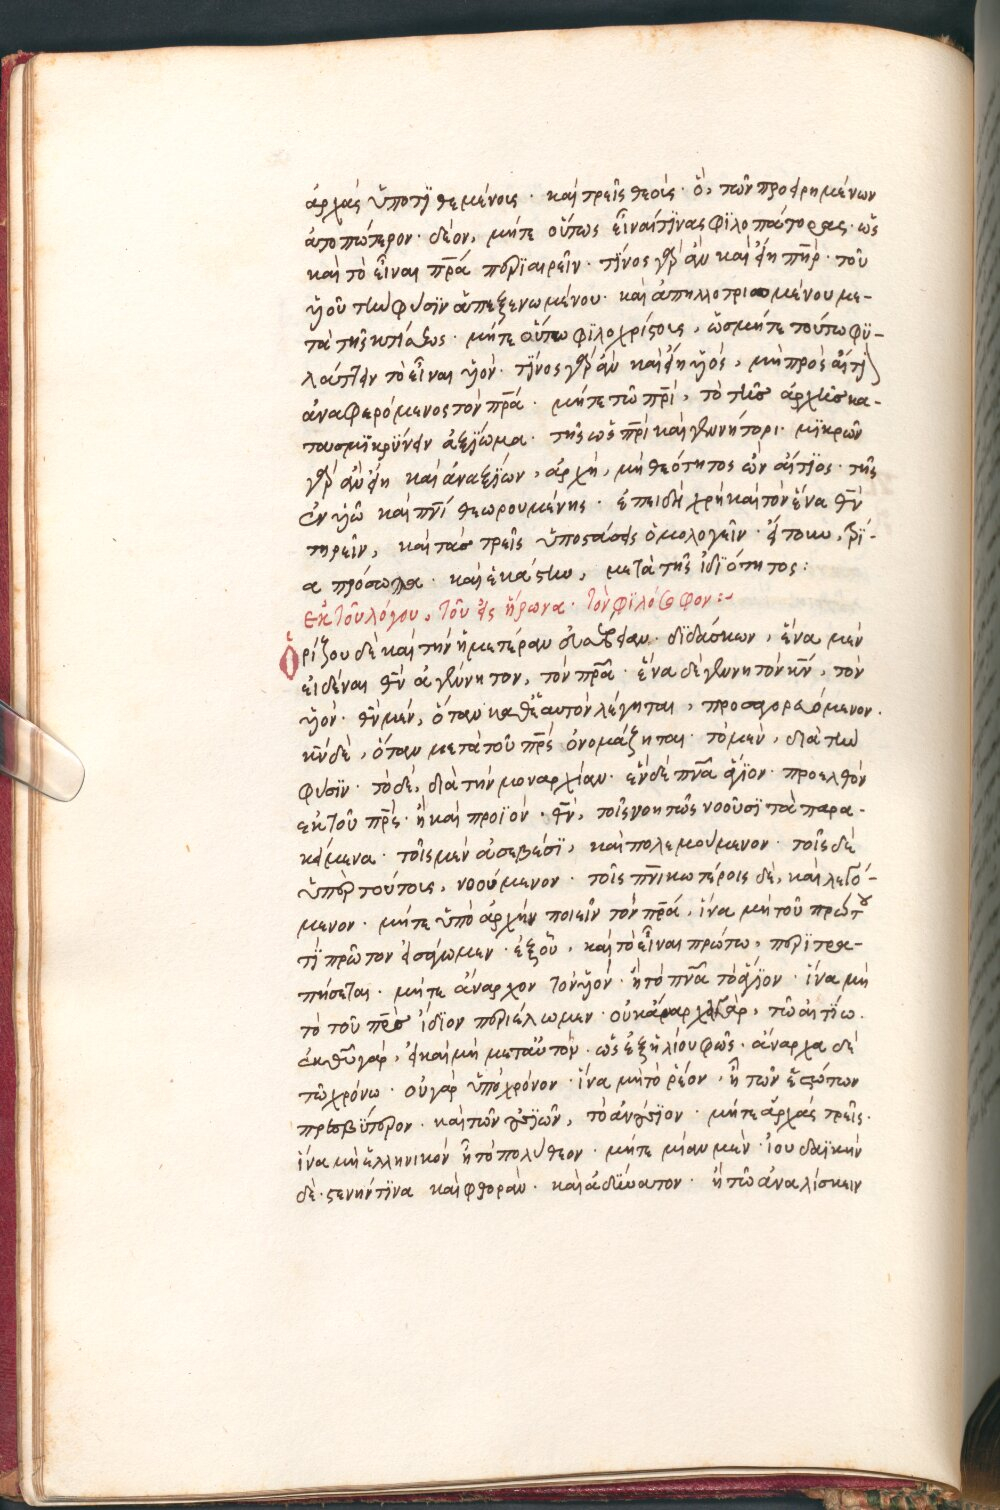 ἀρχὰς ὑποτϊθεμένοις · καὶ τρεῖς θεοὺς · ὃ, τῶν προειρημένων
ἀτοπώτερον · δέον, μήτε οὕτως εἶναί τϊνας φϊλοπάτορας · ὡς
καὶ τὸ εἶναι πρ̅α περϊαιρεῖν · τϊνος γὰρ ἂν καὶ εἴη πη̅ρ · τοῦ
ὑοῦ τὴν φύσϊν ἀπεξενωμένου · καὶ ἀπηλλοτριωμένου με-
τὰ τῆς κτίσεως · μήτε οὕτω φϊλοχρίστους, ὡς μήτε τούτω φϋ-
λάττειν τὸ εἶναι ὑόν · τϊνος γὰρ ἂν καὶ εἴη ὑός, μὴ πρὸς αἴτϊ)
ἀναφερόμενος τὸν πρ̅α · μήτε τῶ πρ̅ι, τὸ τῆς ἀρχῆς κα-
τασμϊκρϋνειν ἀξϊωμα · τῆς ὡς πρ̅ι καὶ γεννήτορι · μϊκρῶν
γὰρ ἂν εἴη καὶ ἀναξϊων, ἀρχὴ, μὴ θεότητος ὢν αἴτϊος · τῆς
ἐν ὑῶ καὶ πν̅ι θεωρουμένης · ἐπειδὴ χρὴ καὶ τὸν ἕνα θν̅
τηρεῖν, καὶ τὰς τρεῖς ὑποστάσεις ὁμολογεῖν · εἴτουν, τρί-
α πρόσωπα · καὶ ἑκάστην, μετὰ τῆς ἰδϊότητος :
Ἐκ τοῦ λόγου, τοῦ εἰς ἥρωνα · τὸν φϊλόσοφον :~
Ὁρίζου δὲ καὶ τὴν ἡμετέραν εὐσέβειαν · δϊδάσκων, ἕνα μὲν
εἰδέναι θν̅ ἀγέννητον, τὸν πρ̅α · ἕνα δὲ γεννητὸν κν̅, τὸν
ὑόν · θν̅ μέν, ὅταν καθ' ἑαυτὸν λέγηται, προσαγορευόμενον ·
κν̅ δὲ, ὅταν μετὰ τοῦ πρ̅ς ὀνομάζηται · τὸ μὲν, διὰ τὴν
φύσϊν · τὸ δὲ, διὰ τὴν μοναρχίαν · ἓν δὲ πν̅α ἅγϊον · προελθὸν
ἐκ τοῦ πρ̅ς · ἢ καὶ προϊόν · θν̅, τοῖς νοητῶς νοοῦσϊ τὰ παρα-
κείμενα · τοῖς μὲν ἀσεβέσϊ, καὶ πολεμούμενον · τοῖς δὲ
ὑπὲρ τούτους, νοούμενον · τοῖς πν̅ικωτέροις δὲ, καὶ λεγό-
μενον · μήτε ὑπὸ ἀρχὴν ποιεῖν τὸν πρ̅α, ἵνα μὴ τοῦ πρώτου
τϊ πρῶτον εἰσάγωμεν · ἐξ οὗ, καὶ τὸ εἶναι πρώτω, περϊτρα-
πήσεται · μήτε ἄναρχον τὸν ὑόν · ἢ τὸ πν̅α τὸ ἅγϊον · ἵνα μὴ
τὸ τοῦ πρ̅ς ἴδϊον περϊέλωμεν · οὐκ ἄναρχα γὰρ, τῶ αἰτϊω ·
ἐκ θυ̅ γὰρ, εἰ καὶ μὴ μετ' αὐτὸν · ὡς ἐξ ἡλίου φῶς · ἄναρχα δὲ
τῶ χρόνω · οὐ γὰρ ὑπὸ χρόνον · ἵνα μὴ τὸ ῥέον, ἢ τῶν ἑστώτων
πρεσβύτερον · καὶ τῶν οὐσϊῶν, τὸ ἀνούσϊον · μήτε ἀρχὰς τρεῖς ·
ἵνα μὴ ἑλληνικόν ἢ τὸ πολύθεον · μήτε μίαν μὲν · ἰουδαϊκὴν
δὲ · στενήν τϊνα καὶ φθορὰν · καὶ ἀδϋνατον · ἢ τῶ ἀναλίσκειν